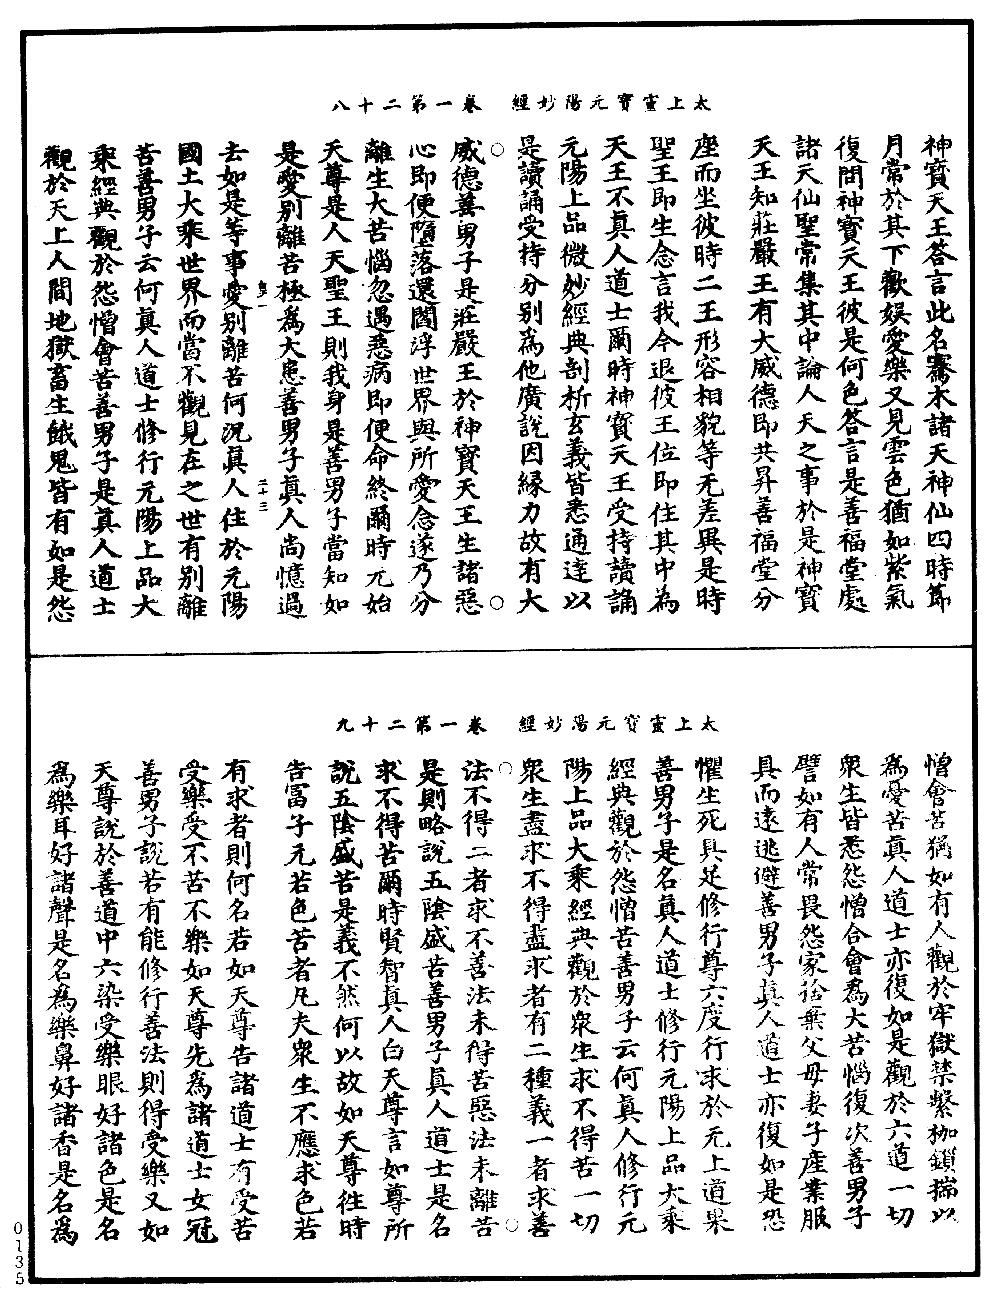 太上靈寶元陽妙經　卷一第二十八
神寶天王答言此名騫木諸天神仙四時節
月常於其下歡娛愛樂又見雲色猶如紫氣
復問神寶天王彼是何色答言是善福堂處
諸天仙聖常集其中論人天之事於是神寶
天王知莊嚴王有大威德即共昇善福堂分
座而坐彼時二王形容相貌等无差異是時
聖王即生念言我今退彼王位即住其中為
天王不真人道士爾時神寶天王受持讀誦
元陽上品微妙經典剖析玄義皆悉通達以
是讀誦受持分別為他廣說因緣力故有大
威德善男子是莊嚴王於神寶天王生諸惡
心即便墮落還閻浮世界與所愛念遂乃分
離生大苦惱忽遇惡病即便命終爾時元始
天尊是人天聖王則我身是善男子當知如
是愛別離苦極為大患善男子真人尚憶過
二十三
去如是等事愛別離苦何況真人住於元陽
國土大乘世界而當不觀見在之世有別離
苦善男子云何真人道士修行元陽上品大
乘經典觀於怨憎會苦善男子是真人道士
觀於天上人間地獄畜生餓鬼皆有如是怨
太上靈寶元陽妙經　卷一第二十九
憎會苦猶如有人觀於牢獄禁繫枷鎖揣以
為憂苦真人道士亦復如是觀於六道一切
衆生皆悉怨憎合會為大苦惱復次善男子
譬如有人常畏怨家捨棄父母妻子產業服
具而遠逃避善男子真人道士亦復如是恐
懼生死具足修行尊六度行求於无上道果
善男子是名真人道士修行元陽上品大乘
經典觀於怨憎苦善男子云何真人修行元
陽上品大乘經典觀於衆生求不得苦一切
衆生盡求不得盡求者有二種義一者求善
法不得二者求不善法未得苦惡法未離苦
是則略說五陰盛苦善男子真人道士是名
求不得苦爾時賢智真人白天尊言如尊所
說五陰盛苦是義不然何以故如天尊往時
告富子元若色苦者凡夫衆生不應求色若
有求者則何名若如天尊告諸道士有受苦
受樂受不苦不樂如天尊先為諸道士女冠
善男子說若有能修行善法則得受樂又如
天尊說於善道中六染受樂眼好諸色是名
為樂耳好諸聲是名為樂鼻好諸香是名為
0135